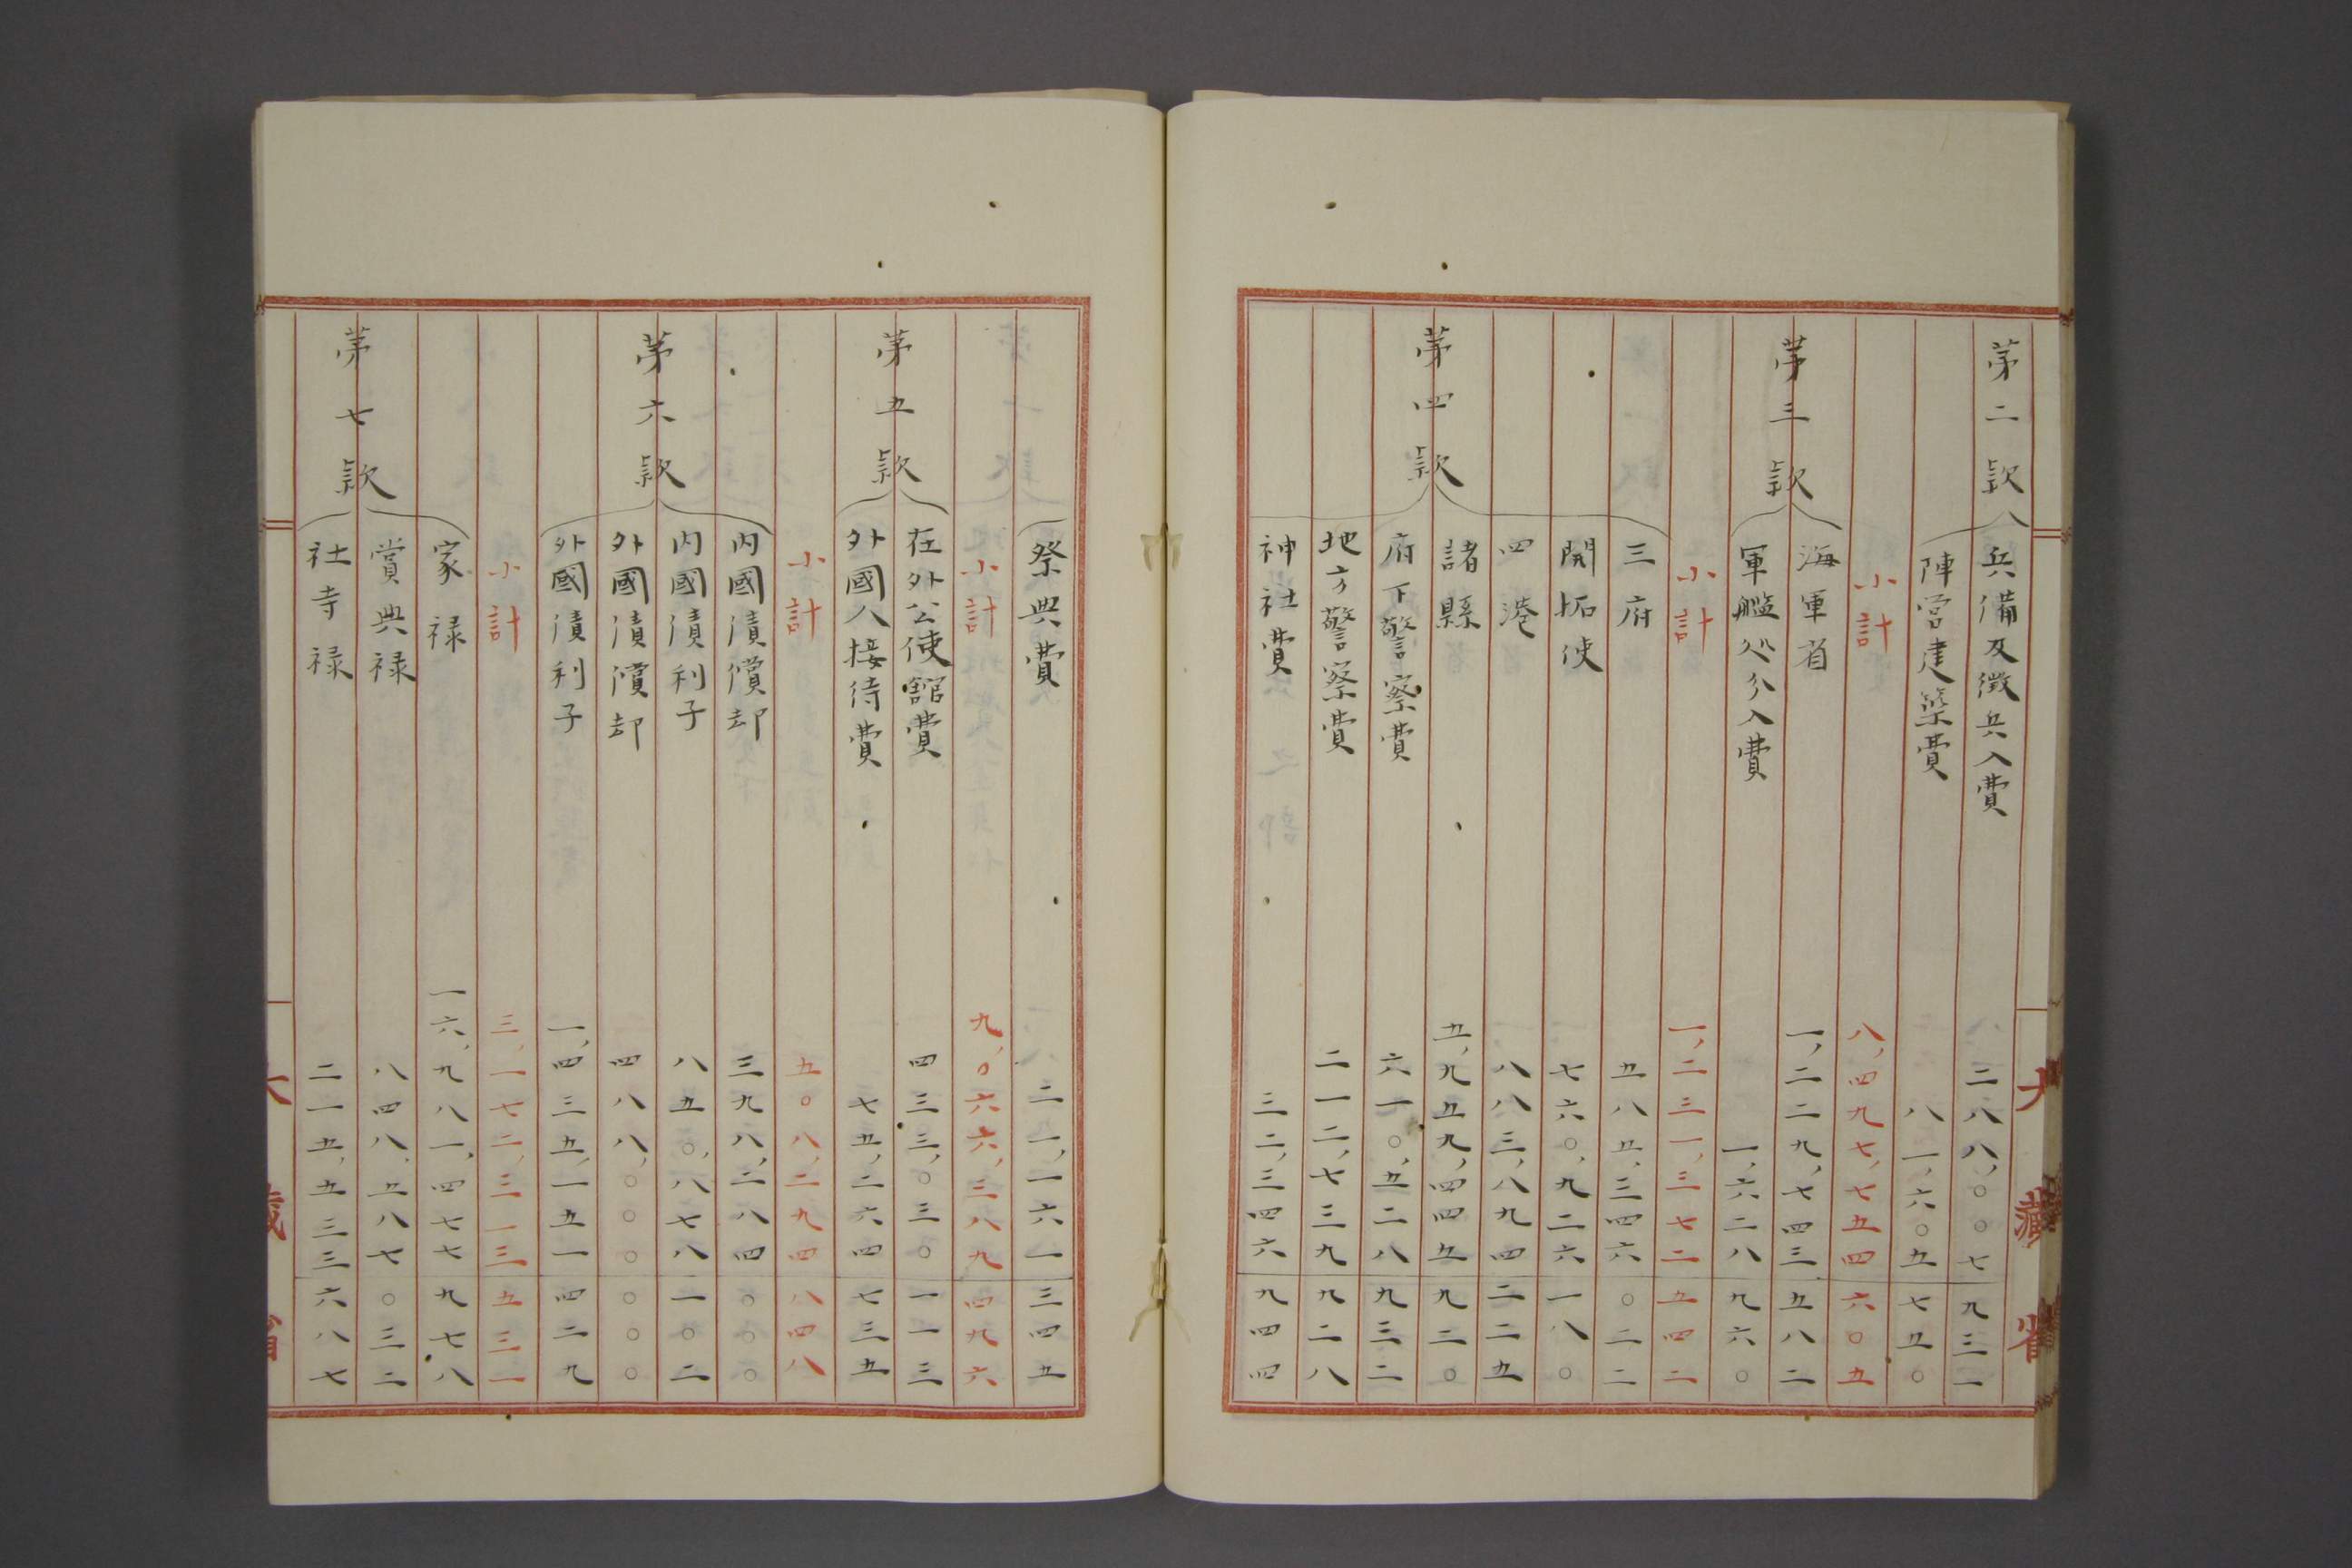 大藏省
苐二款 兵備及徴兵入費 二八八,〇〇七 九三一
陣営建築費 八一,六〇五 七五〇
小計 八,四九七,七五四 六〇五
苐三款 海軍省 一,二二九,七四三 五八二
軍艦処分入費 一,六二八 九六〇
小計 一,二三一,三七二 五四二
苐四款 三府 五八五,三四六 〇二二
開拓使 七六〇,九二六 一八〇
四港 八八三,八九四 二二五
諸縣 五,九五九,四四五 九二〇
府下警察費 六一〇,五二八 九三二
地方警察費 二一二,七三九 九二八
神社費 三二,三四六 九四四
祭典費 二一,一六一 三四五
小計 九,〇六六,三八九 四九六
苐五款 在外公使館費 四三三,〇三〇 一一三
外國人接待費 七五,二六四 七三五
小計 五〇八,二九四 八四八
苐六款 内國債償却 三九八,二八四 〇〇〇
内國債利子 八五〇,八七八 一〇二
外國債償却 四八八,〇〇〇 〇〇〇
外國債利子 一,四三五,一五一 四二九
小計 三,一七二,三一三 五三一
苐七款 家禄 一六,九八一,四七七 九七八
賞典禄 八四八,五八七 〇三二
社寺禄 二一五,五三三 六八七
大藏省